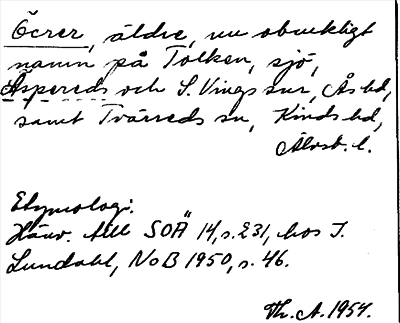 Öcrer, äldre, nu obrukligt
namn på Tolken, sjö,
Äspereds och S. Vings snr, Ås hd,
samt Tvärreds sn, Kinds hd,
Älvsb. l.
Etymologi.
Hänv. till SOÄ 14, s. 231, hos I.
Lundahl, NoB 1950, s. 46.
Th. A. 1954.